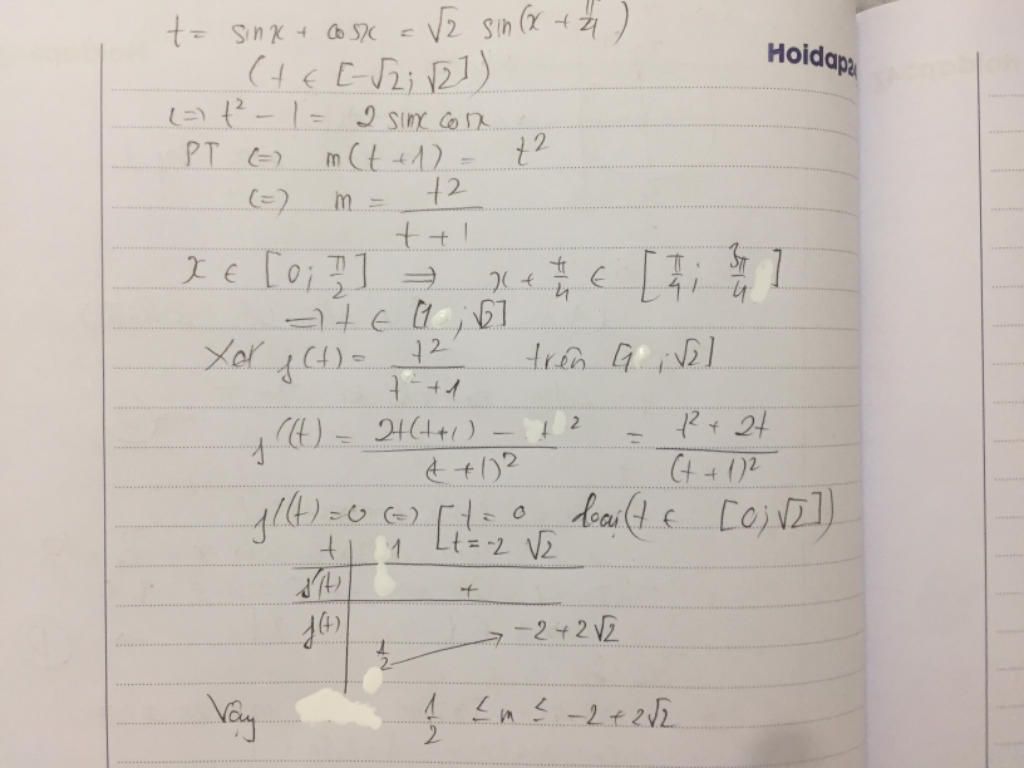 t = sinx + cosx = √2 sin(x + π/4)
Hoidap
(t ∈ [-√2; √2])
(=) t² - 1 = 2 sinx cosx
PT (=) m(t+1) = t²
(=) m = t2/(t+1)
x ∈ [0; π/2] => x + π/4 ∈ [π/4; 3π/4]
=> t ∈ [1; √2]
Xét f(t) = t2/(t²+1) trên [1; √2]
f'(t) = (2t(t+1) - t²)/(t+1)² = (t² + 2t)/(t+1)²
f'(t) = 0 (=) [t = 0 loại (t ∈ [0; √2])
t = -2
t 1 √2
f'(t) +
f(t) 1/2 -2+2√2
Vậy 1/2 ≤ m ≤ -2+2√2